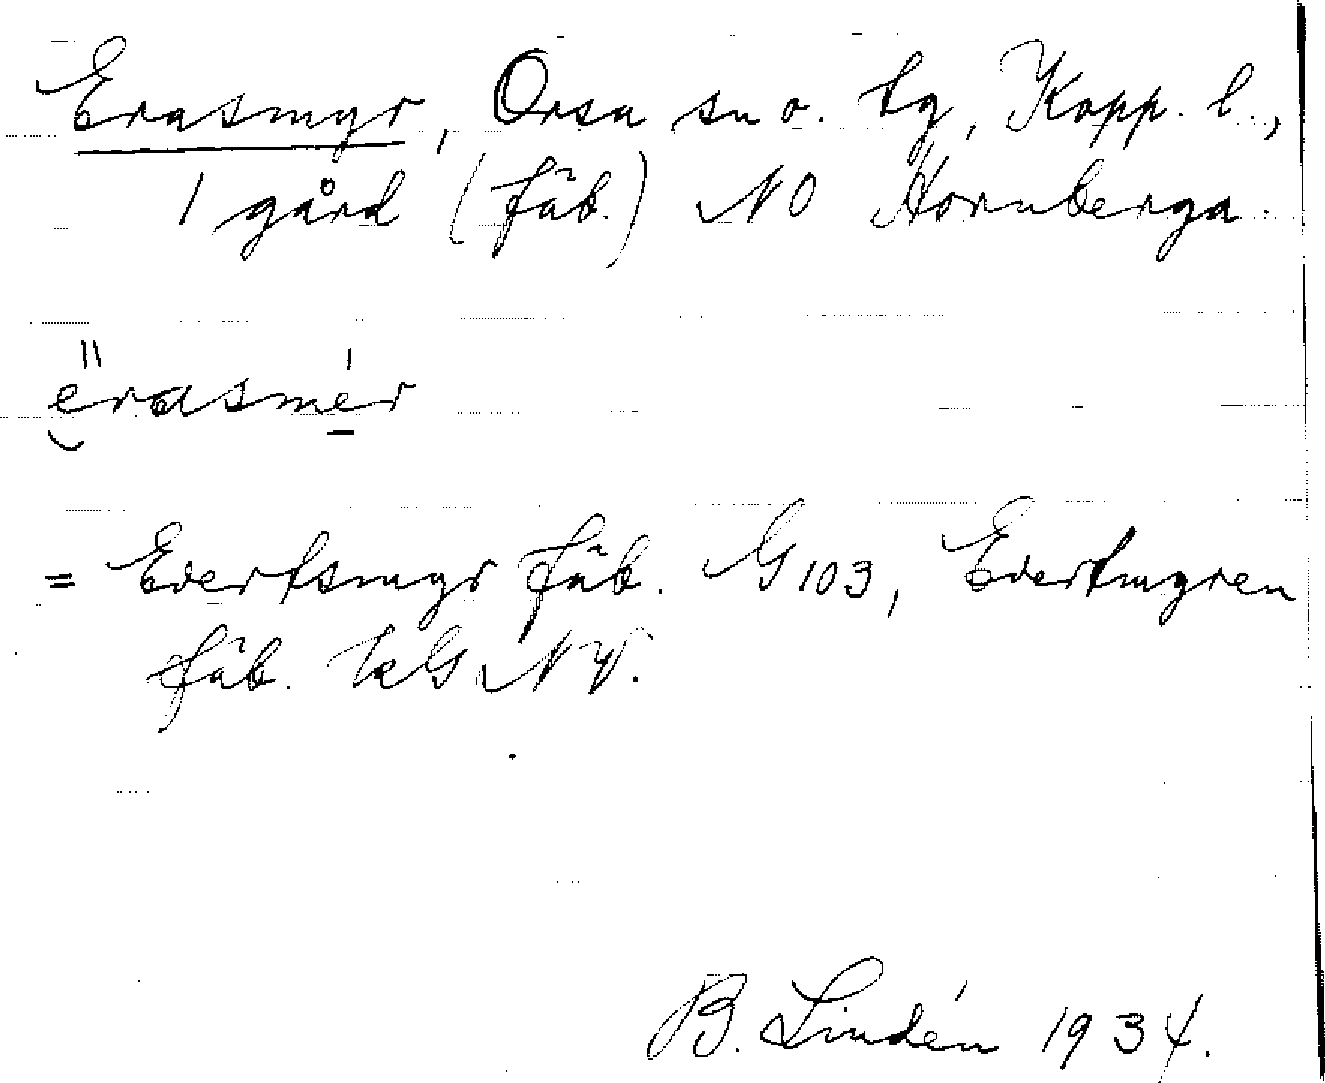 Erasmyr, Orsa sn o. tg, Kopp. l.,
1 gård (fäb.) NO Hornberga.
erasmer
= Evertsmyr fäb. G103, Evertmyren
fäb. KG NV.
B. Lindén 1934.